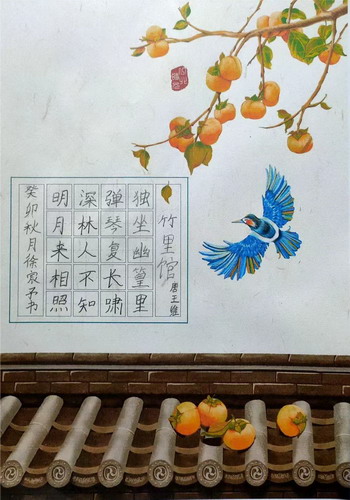 竹里馆
唐王维
独坐幽篁里
弹琴复长啸
深林人不知
明月来相照
癸卯秋月徐家予书